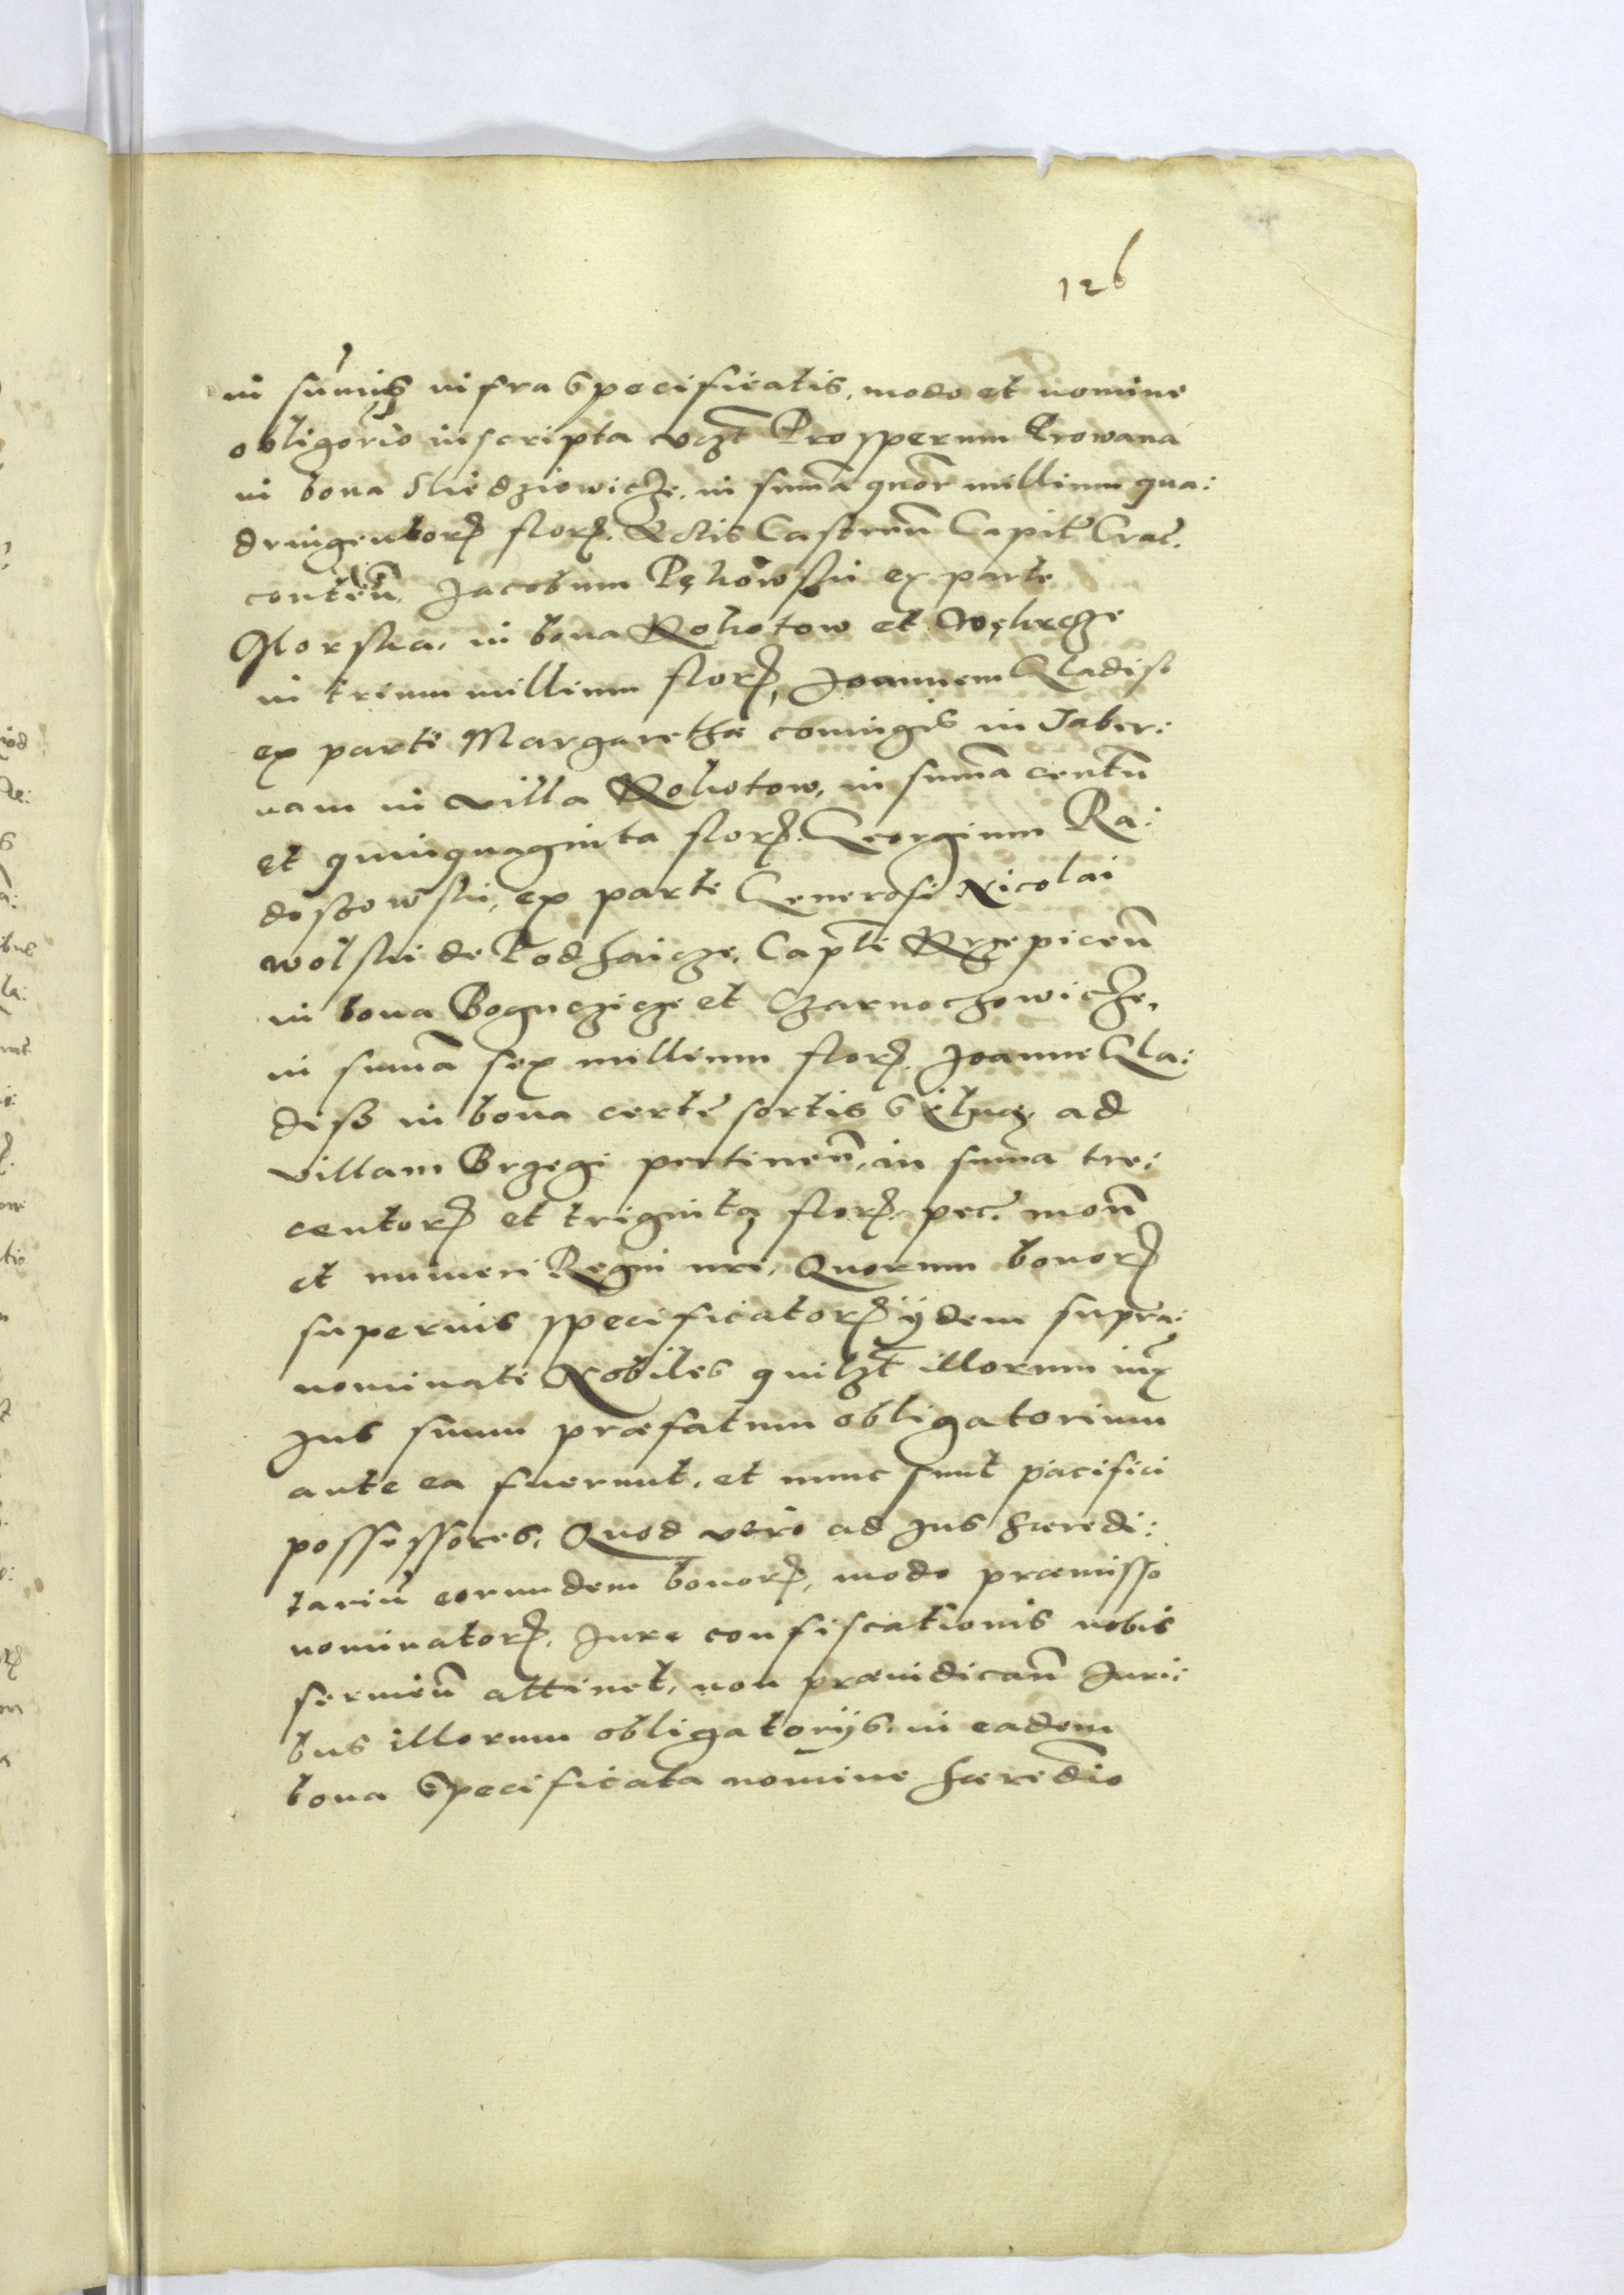 126
in sum̃is infra specificatis, modo et nomine
obligorio inscripta vcȝt Prosperum Prowana
in bona Sliedziowicze, in suma quor millium qua:
dringentorꝝ florꝝ. Actis Castreñ Capitl Crac.
conteñ. Jacobum Pękowski ex parte
in bona Kokotow et Węhrcze
in trium millium florꝝ, Joannem Gladisz
ex parte Margarethæ coniugis in Taber:
nam in villa Kokotow, in suma centũ
et quinquaginta florꝝ. Georgium Ra:
doszowski, ex parte Generosi Nicolai
Wolski de Podhaicze, Capti Krzepiceñ
in bona Boguczicze et Czarnochowicze,
in suma sex millium florꝝ. Joanne Gla:
disz in bona certe sortis ad
villam Brzegi pertineñ, in suma tre:
centorꝝ et triginta florꝝ. pec. moñ
et numeri Regni nri, Quorum bonorꝝ
superius specificatorꝝ ijdem supra:
nominati Nobiles quilȝt illorum iux
Jus suum præfatum obligatorium
ante ea fuerunt, et nunc sunt pacifici
possessores, Quod vero ad Jus hæredi:
tariũ eorundem bonorꝝ, modo præmisso
nominatorꝝ, Jure confiscationis nobis
servieñ attinet, non præiudicañ Juri:
bus illorum obligatorijs, in eadem
bona specificata nomine hæredio